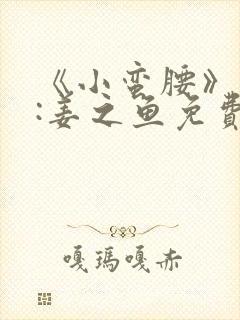 《小蛮腰》
:姜之鱼免費
嘎瑪嘎赤